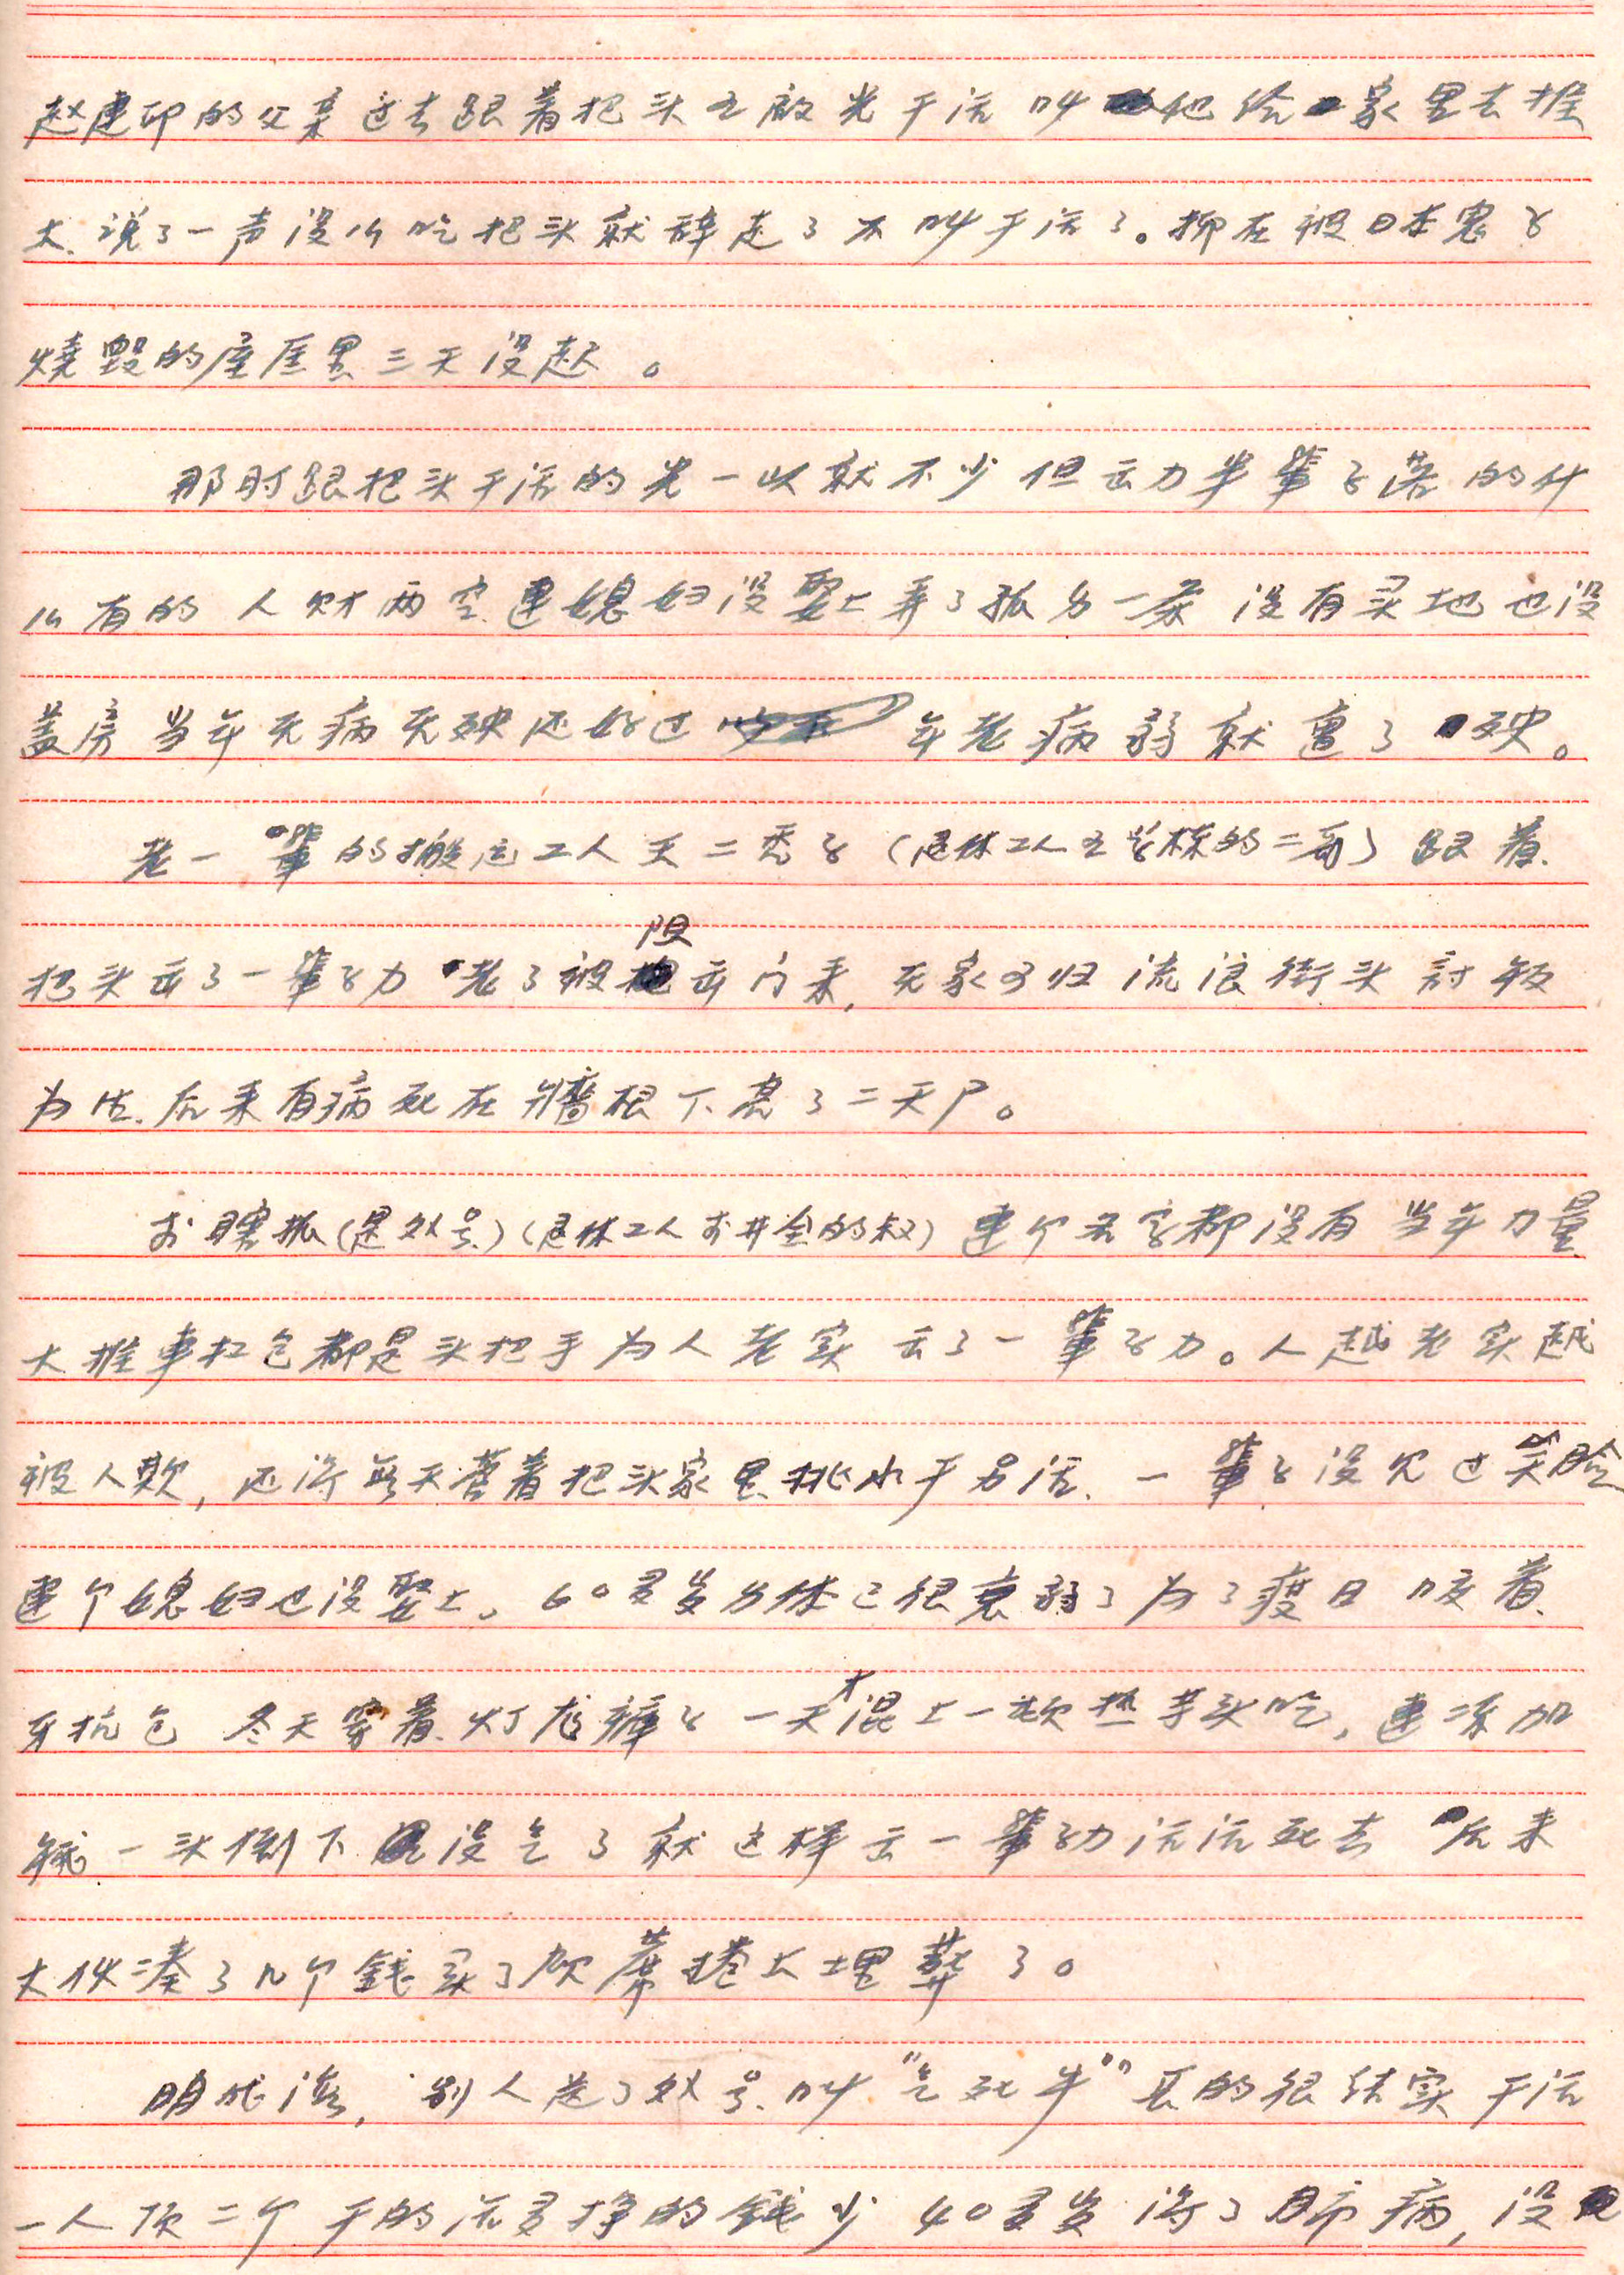 赵建印的父亲过去跟着把头王啟光干活叫他给家里去推
大.说了一声没什吃把头就辞走了不叫干活了。抑在被日本鬼子
燒毀的屋厓里三天没起。
那时跟把头干活的光一以就不少但击力半輩子落的什
么有的人财两空連媳妇没娶上弄了孤身一条没有买地也没
盖房当年无病无殃还好过年老病弱就遭了殃。
老一輩的搬运工人王二秃子(退休工人王学栋的二哥)跟着
把头击了一輩子力老了被限击门来,无家可归流浪街头討飯
为生.后来有病死在墙根下凉了二天尸。
李瞎抓(是外号)(退休工人李井全的叔)連个名字都没有当年力量
大推車扛包都是头把手为人老实击了一輩子力。人越老实越
被人欺,还济每天替着把头家里挑水干另活.一輩子没欠过笑脸
連个媳妇也没娶上。60多岁身体已很衰弱了为了度日咬着
牙抗包冬天穿着灯龙褲子一天才混上一顿热芋头吃,連冻加
餓一头倒下没气了就这样击一輩子力活活死去后来
大伙凑了几个錢买了欣蓆捲上埋葬了。
明成海,别人送了外号叫“气死牛”真的很结实干活
一人顶二个干的活多挣的錢少40多岁济了肺病,没